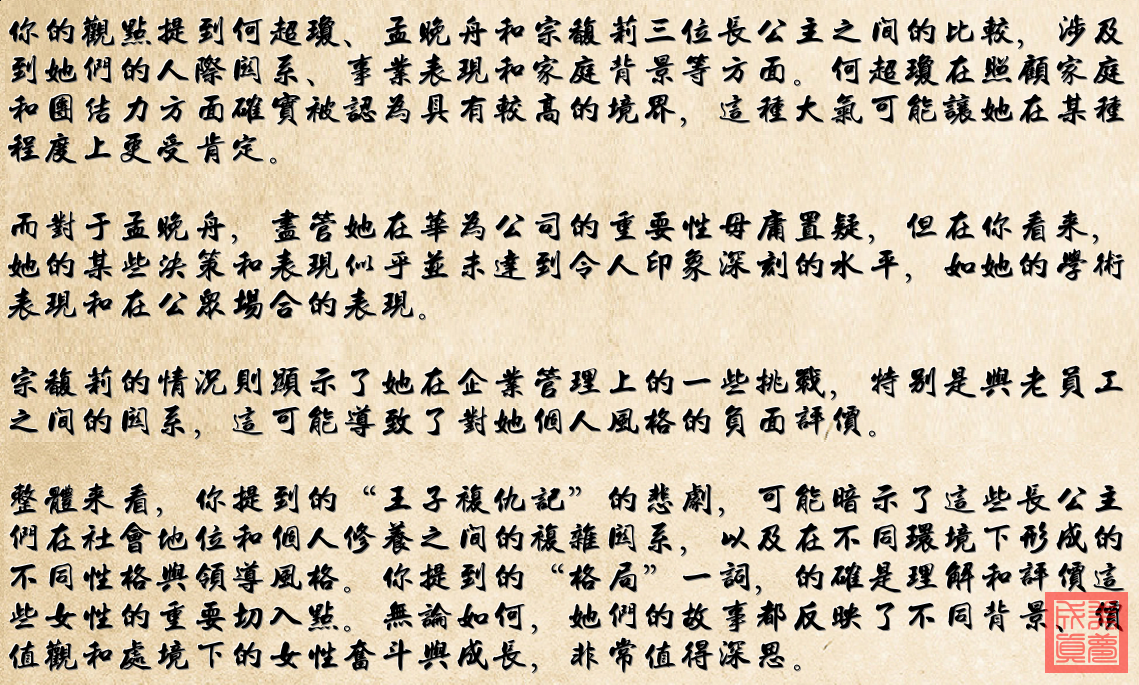 你的觀點提到何超瓊、孟晚舟和宗馥莉三位長公主之间的比較，涉及
到她們的人際関系、事業表現和家庭背景等方面。何超瓊在照顧家庭
和團结力方面確實被認為具有較高的境界，這種大氣可能讓她在某種
程度上更受肯定。
而對于孟晚舟，盡管她在華為公司的重要性毋庸置疑，但在你看来，
她的某些决策和表現似乎並未達到令人印象深刻的水平，如她的學術
表現和在公眾場合的表現。
宗馥莉的情況則顯示了她在企業管理上的一些挑戰，特别是與老員工
之间的関系，這可能導致了對她個人風格的負面評價。
整體来看，你提到的“王子複仇記”的悲劇，可能暗示了這些長公主
們在社會地位和個人修養之间的複雜関系，以及在不同環境下形成的
不同性格與領導風格。你提到的“格局”一詞，的確是理解和評價這
些女性的重要切入點。無論如何，她們的故事都反映了不同背景、價
值觀和處境下的女性奮斗與成長，非常值得深思。